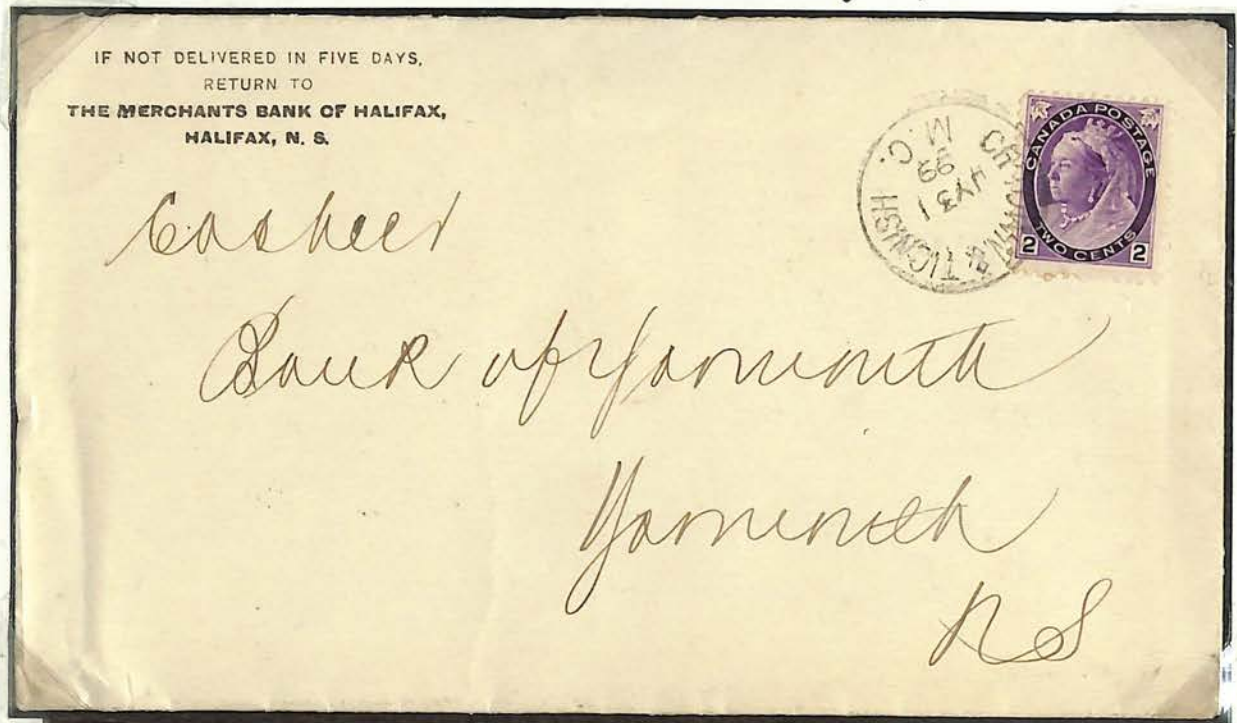 IF NOT DELIVERED IN FIVE DAYS,
RETURN TO
THE MERCHANTS BANK OF HALIFAX,
HALIFAX, N. S.
CH'TOWN & TIGNISH
M.C.
MY 31
99
CANADA POSTAGE
2 TWO CENTS 2
Cashier
Bank of Yarmouth
Yarmouth
N S